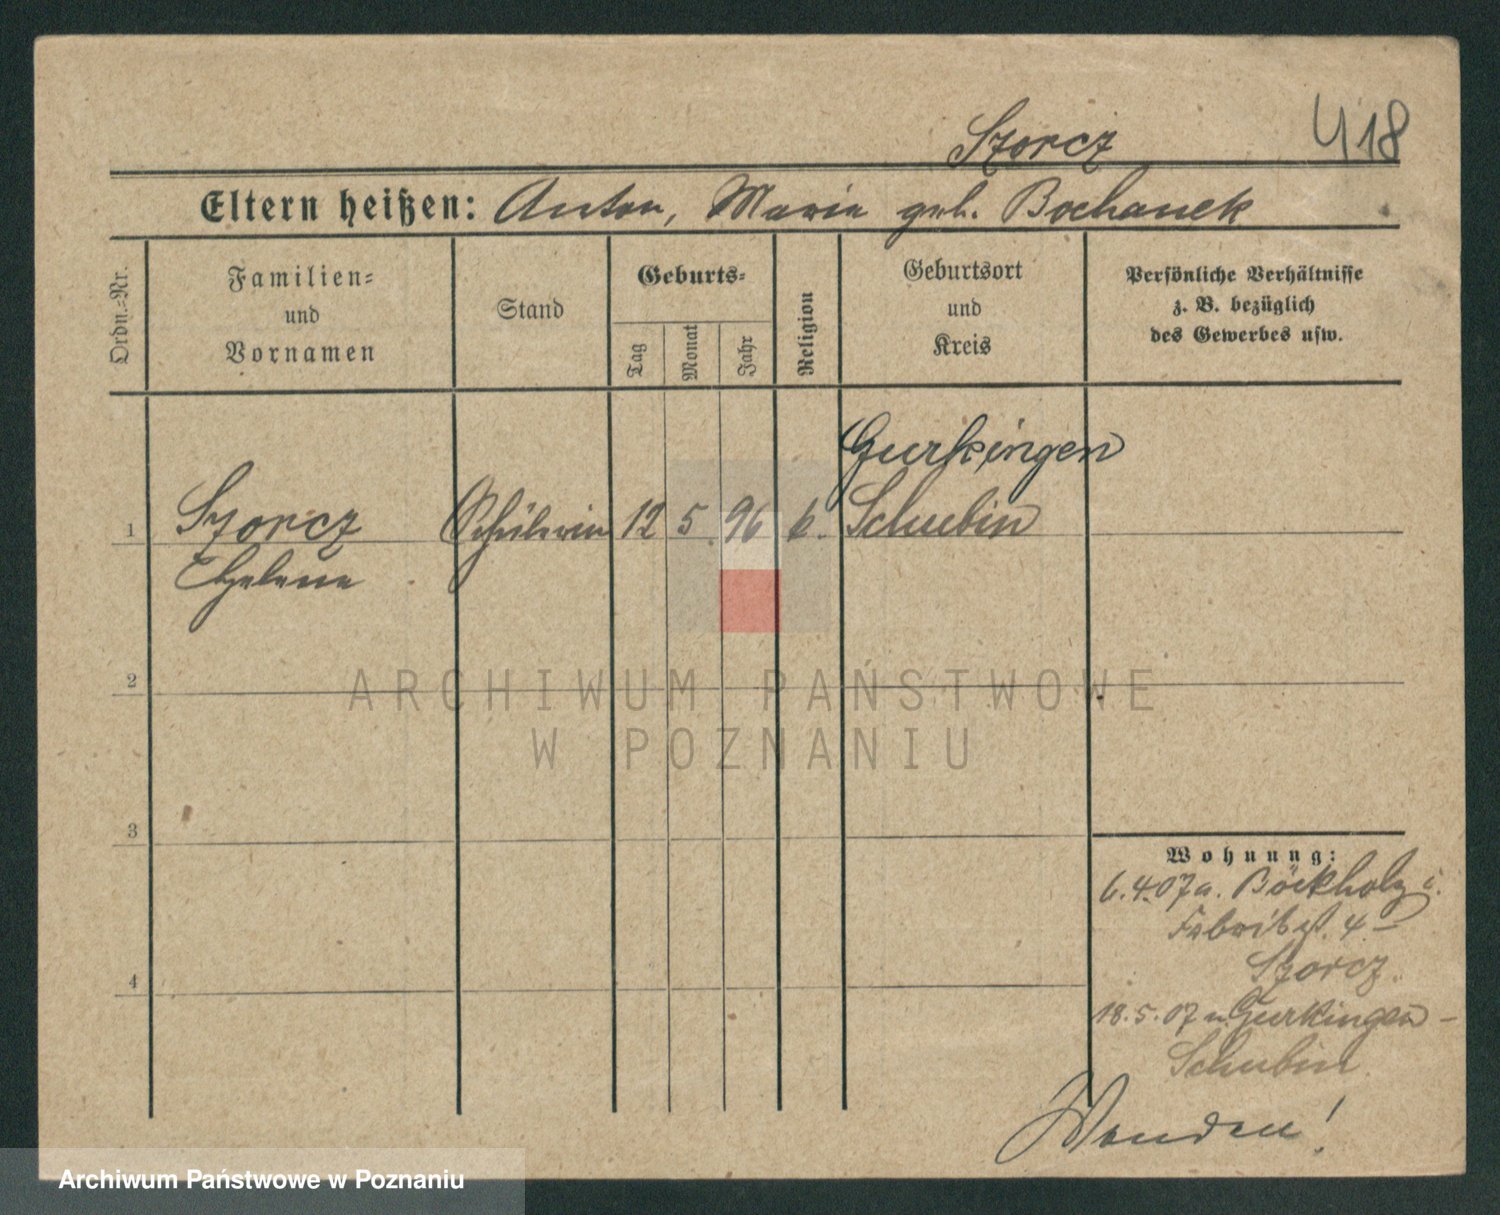 Szorcz
418
Eltern heißen: Anton, Marie geb. Bochanek
Ordn.-Nr.
Familien-
und
Vornamen
Stand
Geburts-
Tag
Monat
Jahr
Religion
Geburtsort
und
Kreis
Persönliche Verhältnisse
z. B. bezüglich
des Gewerbes usw.
Gurkingen
1 Szorcz Schülerin 12 5. 96 k. Schubin
Helene
2
ARCHIWUM PAŃSTWOWE
W POZNANIU
3
4
Wohnung:
6.4.07 a. Böckholz
Fabrikst. 4 –
Szorcz.
18.5.07 n. Gurkingen –
Schubin
Wenden!
Archiwum Państwowe w Poznaniu